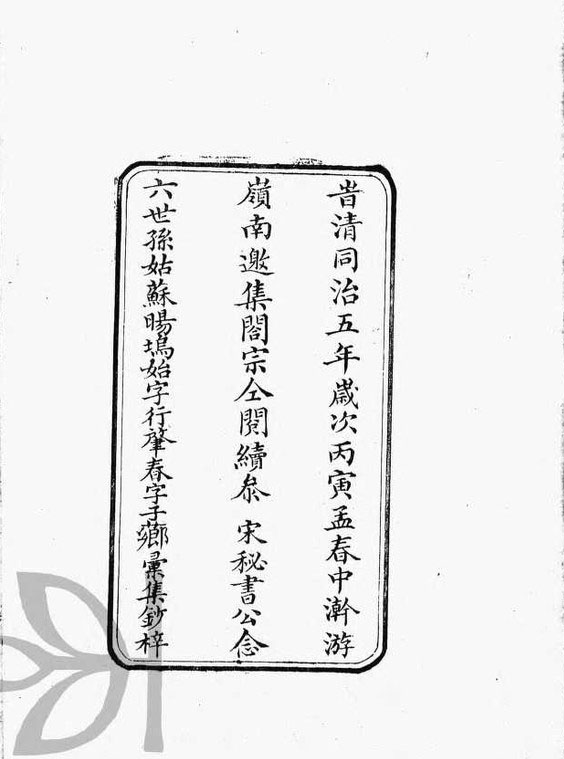 旹清同治五年歲次丙寅孟春中澣游
嶺南邀集閤宗仝閱續叅 宋秘書公念
六世孫姑蘇暘塢始字行肇春字子薌彚集鈔梓